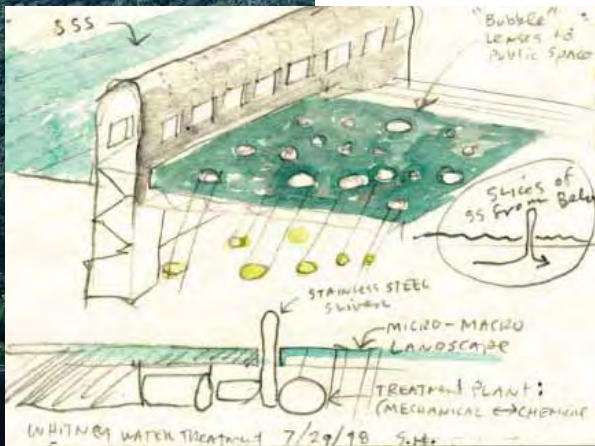 SSS
"Bubble"
Lenses to
Public Space
Slices of
SS From Below
STAINLESS STEEL
SLIVER
MICRO-MACRO
LANDSCAPE
TREATMENT PLANT:
(MECHANICAL ↔ CHEMICAL
WHITNEY WATER TREATMENT 7/29/98 S.H.